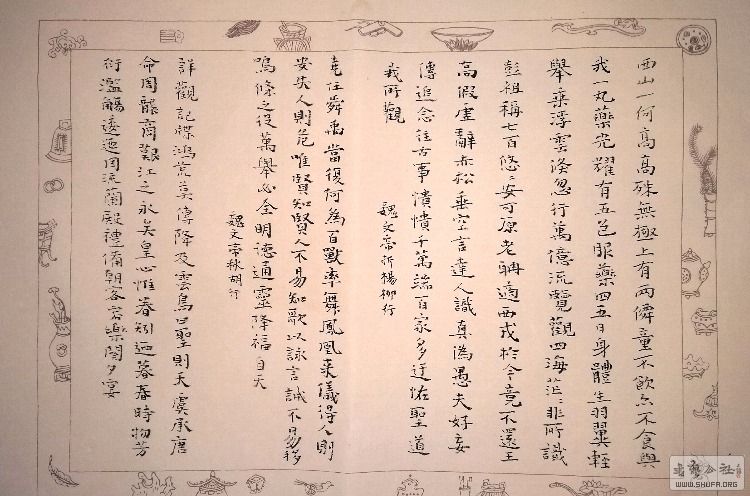 西山一何高高殊無極上有兩僊童不飲亦不食與
我一丸藥光耀有五色服藥四五日身體生羽翼輕
舉乘浮雲倏忽行萬億流覽觀四海茫茫非所識
彭祖稱七百悠悠安可原老聃適西戎於今竟不還王
喬假虛辭赤松垂空言達人識真偽愚夫好妄
傳追念往古事憒憒千萬端百家多迂怪聖道
我所觀
魏文帝折楊柳行
堯任舜禹當復何為百獸率舞鳳凰來儀得人則
安失人則危唯賢知賢人不易知歌以詠言誠不易移
鳴條之役萬舉必全明德通靈降福自天
魏文帝秋胡行
詳觀記牒鴻荒莫傳降及雲鳥曰聖則天虞承唐
命周襲商艱江之永矣皇心惟眷矧迺暮春時物芳
衍濫觴逶迤周流蘭殿禮備朝容樂闋夕宴
书法公社
WWW.SHUFA.ORG